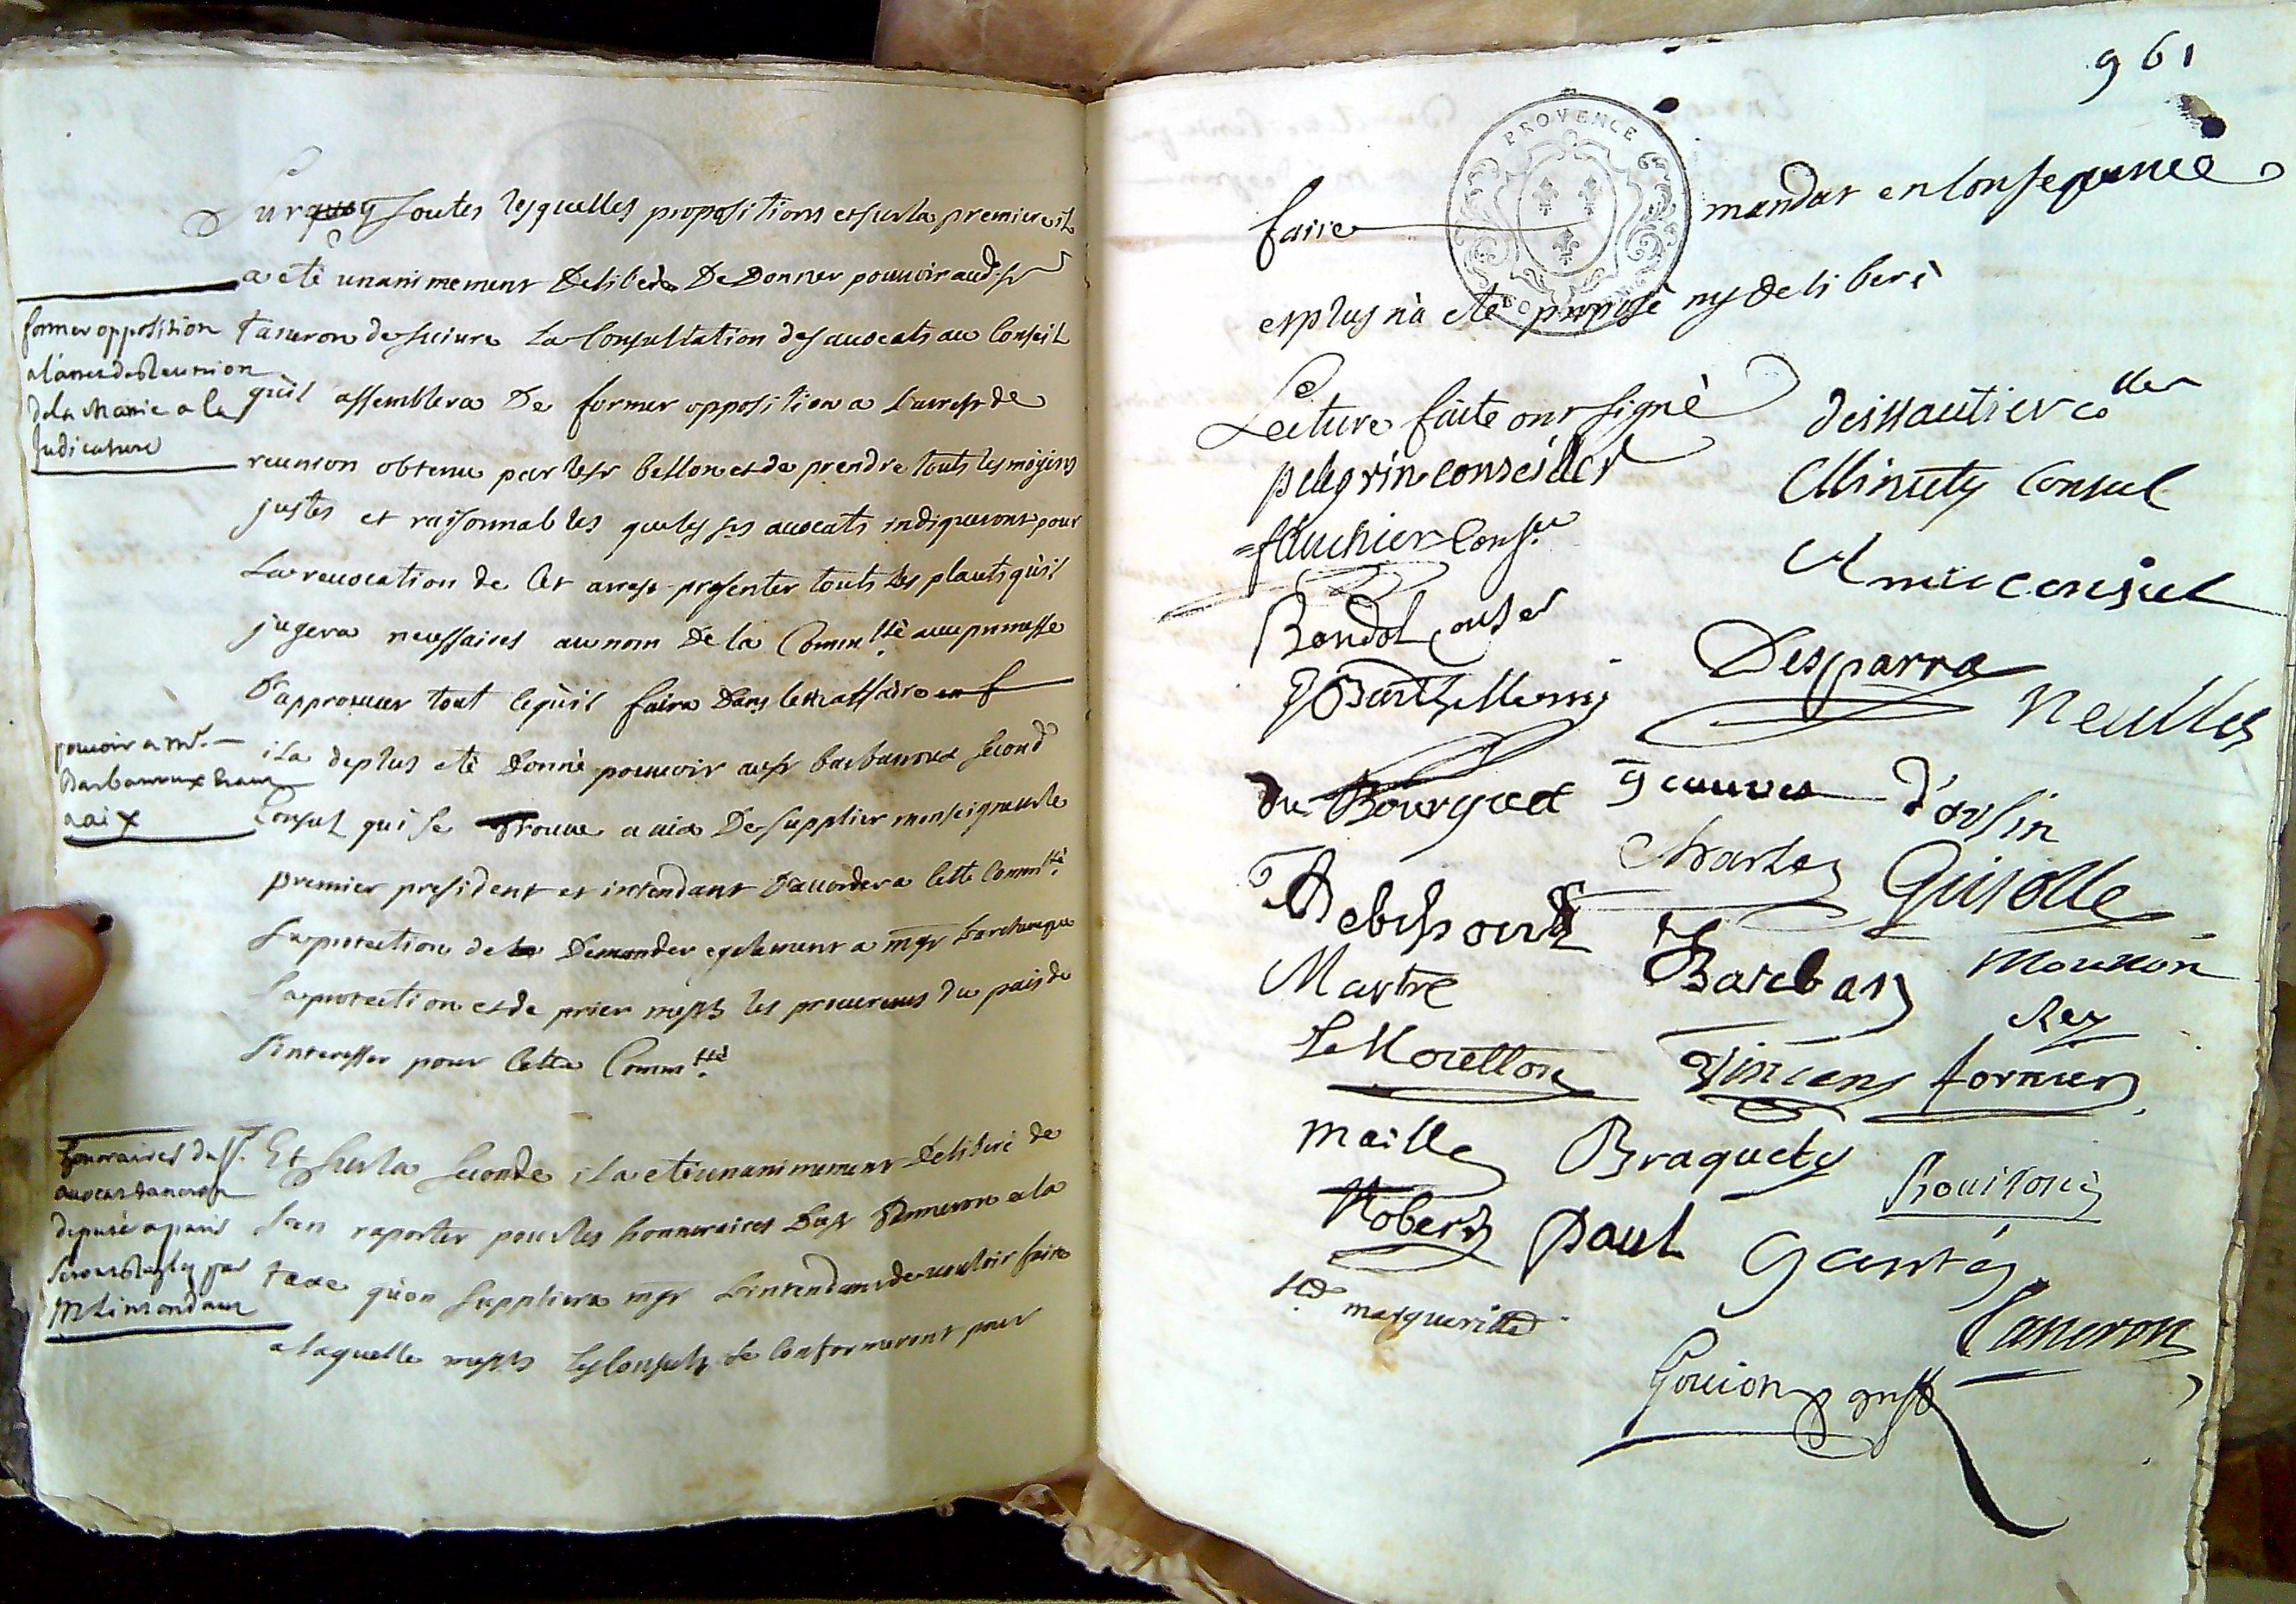 Sur toutes lesquelles propositions et sur la premiere il
a eté unanimement Deliberé De Donner pouvoir aud. sr
Taneron de suivre La Consultation des avocats au Conseil
qu'il assemblera De former opposition a L'arrest de
reunion obtenu par le sr bellon et de prendre touts les moyens
justes et raisonnables que les srs avocats indiqueront pour
La revocation de Cet arrest presenter touts Les placets qu'il
jugera necessaires au nom De la Commté avec promesse
D'approuver tout ce qu'il faira Dans cette affaire
il a de plus eté Donné pouvoir au sr barbaroux second
Consul qui se trouve a aix De supplier monseigneur le
premier president et intendant D'accorder a Cette Commté
Sa protection de Demander egalement a mgr L'archeveque
Sa protection et de prier messrs les procureurs du pais de
S'interesser pour Cette Commté
Et sur la seconde il a eté unanimement Deliberé de
S'en raporter pour les honneraires Du sr Tanneron a la
taxe qu'on suppliera mgr L'intendant de vouloir faire
a laquelle messrs Les Consuls se Conformeront pour
former opposition
a l'arrest de Reunion
de la Mairie a la
Judicature
pouvoir a Mr.
Barbaroux
a aix
honoraires du sr.
avocat taneron
deputé a paris
seront Reglés par
Mr L'intendant
961
PROVENCE
faire mandat en Consequence
et plus n'a eté proposé ny deliberé
Lecture faite ont signé
deissautier coller
pelegrin conseiller
Minuty Consul
fauchier Conser
Amic consul
Bandol Conser
Desparra
J Barthellemy
Neulles
du Bourguet
d'orsin
Charles
Guisolle
Martre
Barclas
Mouuon
Rey
Le Mouttou
Vincens
fornier
Maille
Braquety
Robert
Paul
Gantés
marguerit
Taneron
Gouion greff